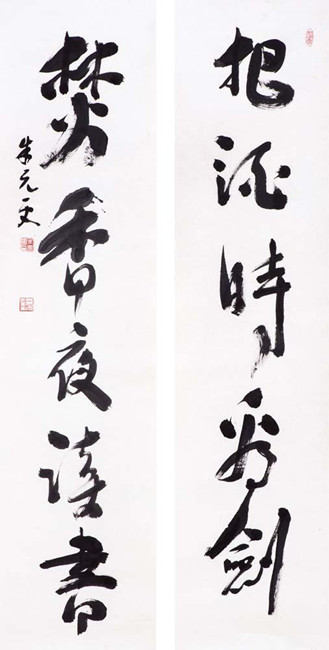 把酒時看劍
焚香夜讀書
朱元更